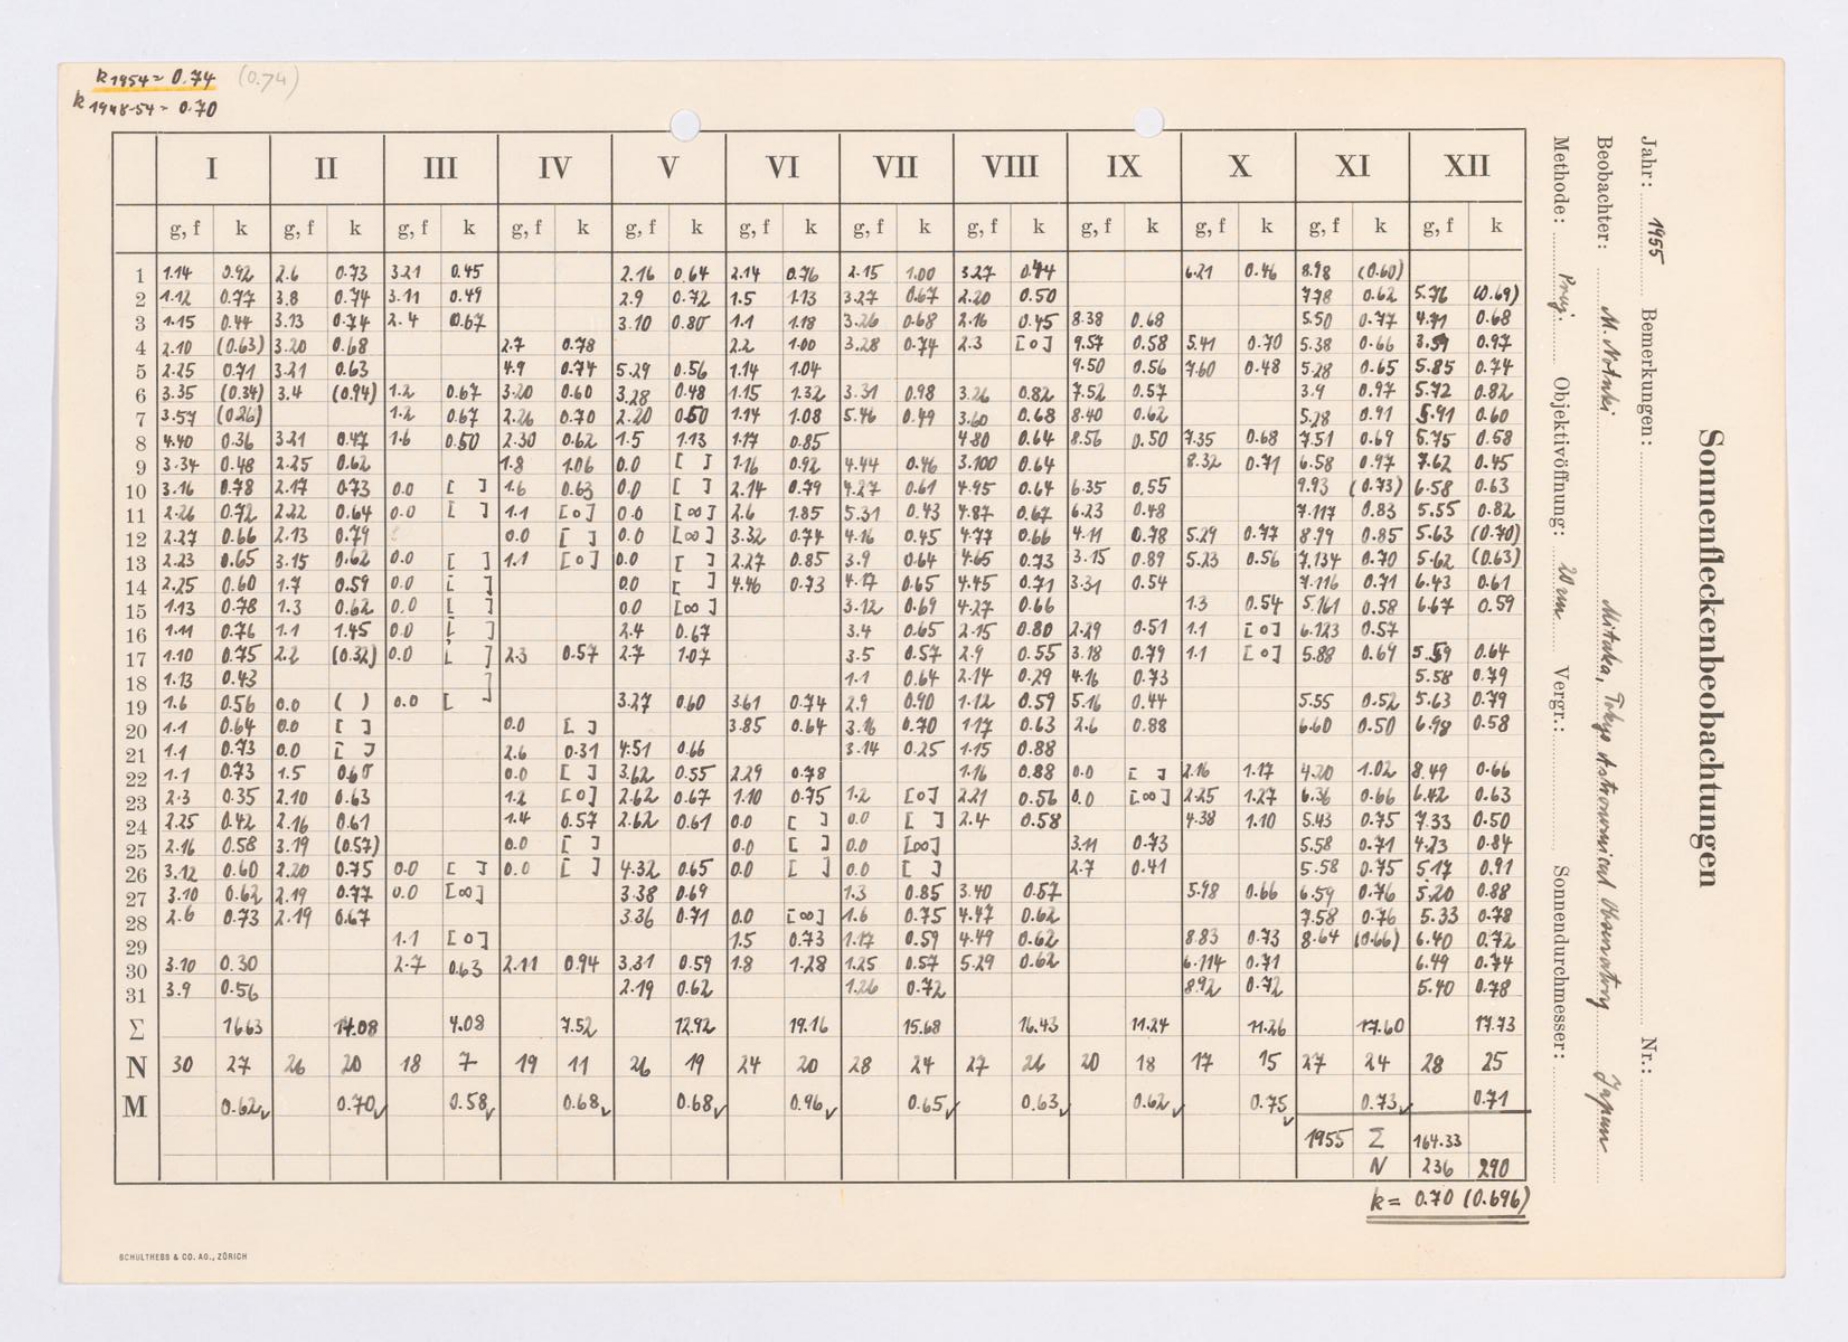 k 1954 = 0.74 (0.74)
k 1948-54 = 0.70
I II III IV V VI VII VIII IX X XI XII
g, f k g, f k g, f k g, f k g, f k g, f k g, f k g, f k g, f k g, f k g, f k g, f k
1 1.14 0.92 2.6 0.73 3.21 0.45 2.16 0.64 2.14 0.76 2.15 1.00 3.27 0.44 6.21 0.46 8.98 (0.60)
2 1.12 0.77 3.8 0.74 3.11 0.49 2.9 0.72 1.5 1.13 3.27 0.67 2.20 0.50 7.78 0.62 5.76 (0.69)
3 1.15 0.44 3.13 0.74 2.4 0.67 3.10 0.80 1.1 1.18 3.26 0.68 2.16 0.45 8.38 0.68 5.50 0.77 4.71 0.68
4 2.10 (0.63) 3.20 0.68 2.7 0.78 2.2 1.00 3.28 0.74 2.3 [0] 9.57 0.58 5.41 0.70 5.38 0.66 3.59 0.97
5 2.25 0.71 3.21 0.63 4.9 0.74 5.29 0.56 1.14 1.04 9.50 0.56 7.60 0.48 5.28 0.65 5.85 0.74
6 3.35 (0.34) 3.4 (0.94) 1.2 0.67 3.20 0.60 3.28 0.48 1.15 1.32 3.31 0.98 3.26 0.82 7.52 0.57 3.9 0.97 5.72 0.82
7 3.57 (0.26) 1.2 0.67 2.26 0.70 2.20 0.50 1.14 1.08 5.46 0.49 3.60 0.68 8.40 0.62 5.28 0.91 5.91 0.60
8 4.40 0.36 3.21 0.47 1.6 0.50 2.30 0.62 1.5 1.13 1.17 0.85 4.80 0.64 8.56 0.50 7.35 0.68 7.51 0.69 5.75 0.58
9 3.34 0.48 2.25 0.62 1.8 1.06 0.0 [ ] 1.16 0.92 4.44 0.46 3.100 0.64 8.32 0.71 6.58 0.97 7.62 0.45
10 3.16 0.78 2.17 0.73 0.0 [ ] 1.6 0.63 0.0 [ ] 2.14 0.79 4.27 0.61 4.95 0.64 6.35 0.55 9.93 (0.73) 6.58 0.63
11 2.26 0.72 2.22 0.64 0.0 [ ] 1.1 [0] 0.0 [∞] 2.6 1.85 5.31 0.43 4.87 0.67 6.23 0.48 7.117 0.83 5.55 0.82
12 2.27 0.66 2.13 0.79 0.0 [ ] 0.0 [∞] 3.32 0.74 4.16 0.45 4.77 0.66 4.11 0.78 5.29 0.77 8.99 0.85 5.63 (0.70)
13 2.23 0.65 3.15 0.62 0.0 [ ] 1.1 [0] 0.0 [ ] 2.27 0.85 3.9 0.64 4.65 0.73 3.15 0.89 5.23 0.56 7.134 0.70 5.62 (0.63)
14 2.25 0.60 1.7 0.59 0.0 [ ] 0.0 [ ] 4.46 0.73 4.17 0.65 4.45 0.71 3.31 0.54 7.116 0.71 6.43 0.61
15 1.13 0.78 1.3 0.62 0.0 [ ] 0.0 [∞] 3.12 0.69 4.27 0.66 1.3 0.54 5.161 0.58 6.67 0.59
16 1.11 0.76 1.1 1.45 0.0 [ ] 2.4 0.67 3.4 0.65 2.15 0.80 2.29 0.51 1.1 [0] 6.123 0.57
17 1.10 0.75 2.2 (0.32) 0.0 [ ] 2.3 0.57 2.7 1.07 3.5 0.57 2.9 0.55 3.18 0.79 1.1 [0] 5.88 0.69 5.59 0.64
18 1.13 0.43 1.1 0.64 2.14 0.29 4.16 0.73 5.58 0.79
19 1.6 0.56 0.0 ( ) 0.0 [ ] 3.27 0.60 3.61 0.74 2.9 0.90 1.12 0.59 5.16 0.44 5.55 0.52 5.63 0.79
20 1.1 0.64 0.0 [ ] 0.0 [ ] 3.85 0.64 3.16 0.70 1.17 0.63 2.6 0.88 6.60 0.50 6.98 0.58
21 1.1 0.73 0.0 [ ] 2.6 0.31 4.51 0.66 3.14 0.25 1.15 0.88
22 1.1 0.73 1.5 0.60 0.0 [ ] 3.62 0.55 2.29 0.78 1.16 0.88 0.0 [ ] 2.16 1.17 4.20 1.02 8.49 0.66
23 2.3 0.35 2.10 0.63 1.2 [0] 2.62 0.67 1.10 0.75 1.2 [0] 2.21 0.56 0.0 [∞] 2.25 1.27 6.36 0.66 6.42 0.63
24 2.25 0.42 2.16 0.61 1.4 0.57 2.62 0.61 0.0 [ ] 0.0 [ ] 2.4 0.58 4.38 1.10 5.43 0.75 7.33 0.50
25 2.16 0.58 3.19 (0.57) 0.0 [ ] 0.0 [ ] 0.0 [∞] 3.11 0.73 5.58 0.71 4.23 0.84
26 3.12 0.60 2.20 0.75 0.0 [ ] 0.0 [ ] 4.32 0.65 0.0 [ ] 0.0 [ ] 2.7 0.41 5.58 0.75 5.17 0.91
27 3.10 0.62 2.19 0.77 0.0 [∞] 3.38 0.69 1.3 0.85 3.40 0.57 5.98 0.66 6.59 0.76 5.20 0.88
28 2.6 0.73 2.19 0.67 3.36 0.71 0.0 [∞] 1.6 0.75 4.47 0.62 7.58 0.76 5.33 0.78
29 1.1 [0] 1.5 0.73 1.17 0.59 4.49 0.62 8.83 0.73 8.64 (0.66) 6.40 0.72
30 3.10 0.30 2.7 0.63 2.11 0.94 3.31 0.59 1.8 1.28 1.25 0.57 5.29 0.62 6.114 0.71 6.49 0.74
31 3.9 0.56 2.19 0.62 1.26 0.72 8.92 0.72 5.40 0.78
Σ 16.63 14.08 4.08 7.52 12.92 19.16 15.68 16.43 11.24 11.26 17.60 17.73
N 30 27 26 20 18 7 19 11 26 19 24 20 28 24 27 26 20 18 17 15 27 24 28 25
M 0.62 0.70 0.58 0.68 0.68 0.96 0.65 0.63 0.62 0.75 0.73 0.71
1955 Σ 164.33
N 236 290
k = 0.70 (0.696)
SCHULTHESS & CO. AG., ZÜRICH
Sonnenfleckenbeobachtungen
Jahr: 1955 Bemerkungen: Nr.:
Beobachter: M. Notuki Mitaka, Tokyo Astronomical Observatory Japan
Methode: Proj. Objektivöffnung: 20 cm Vergr.: Sonnendurchmesser: